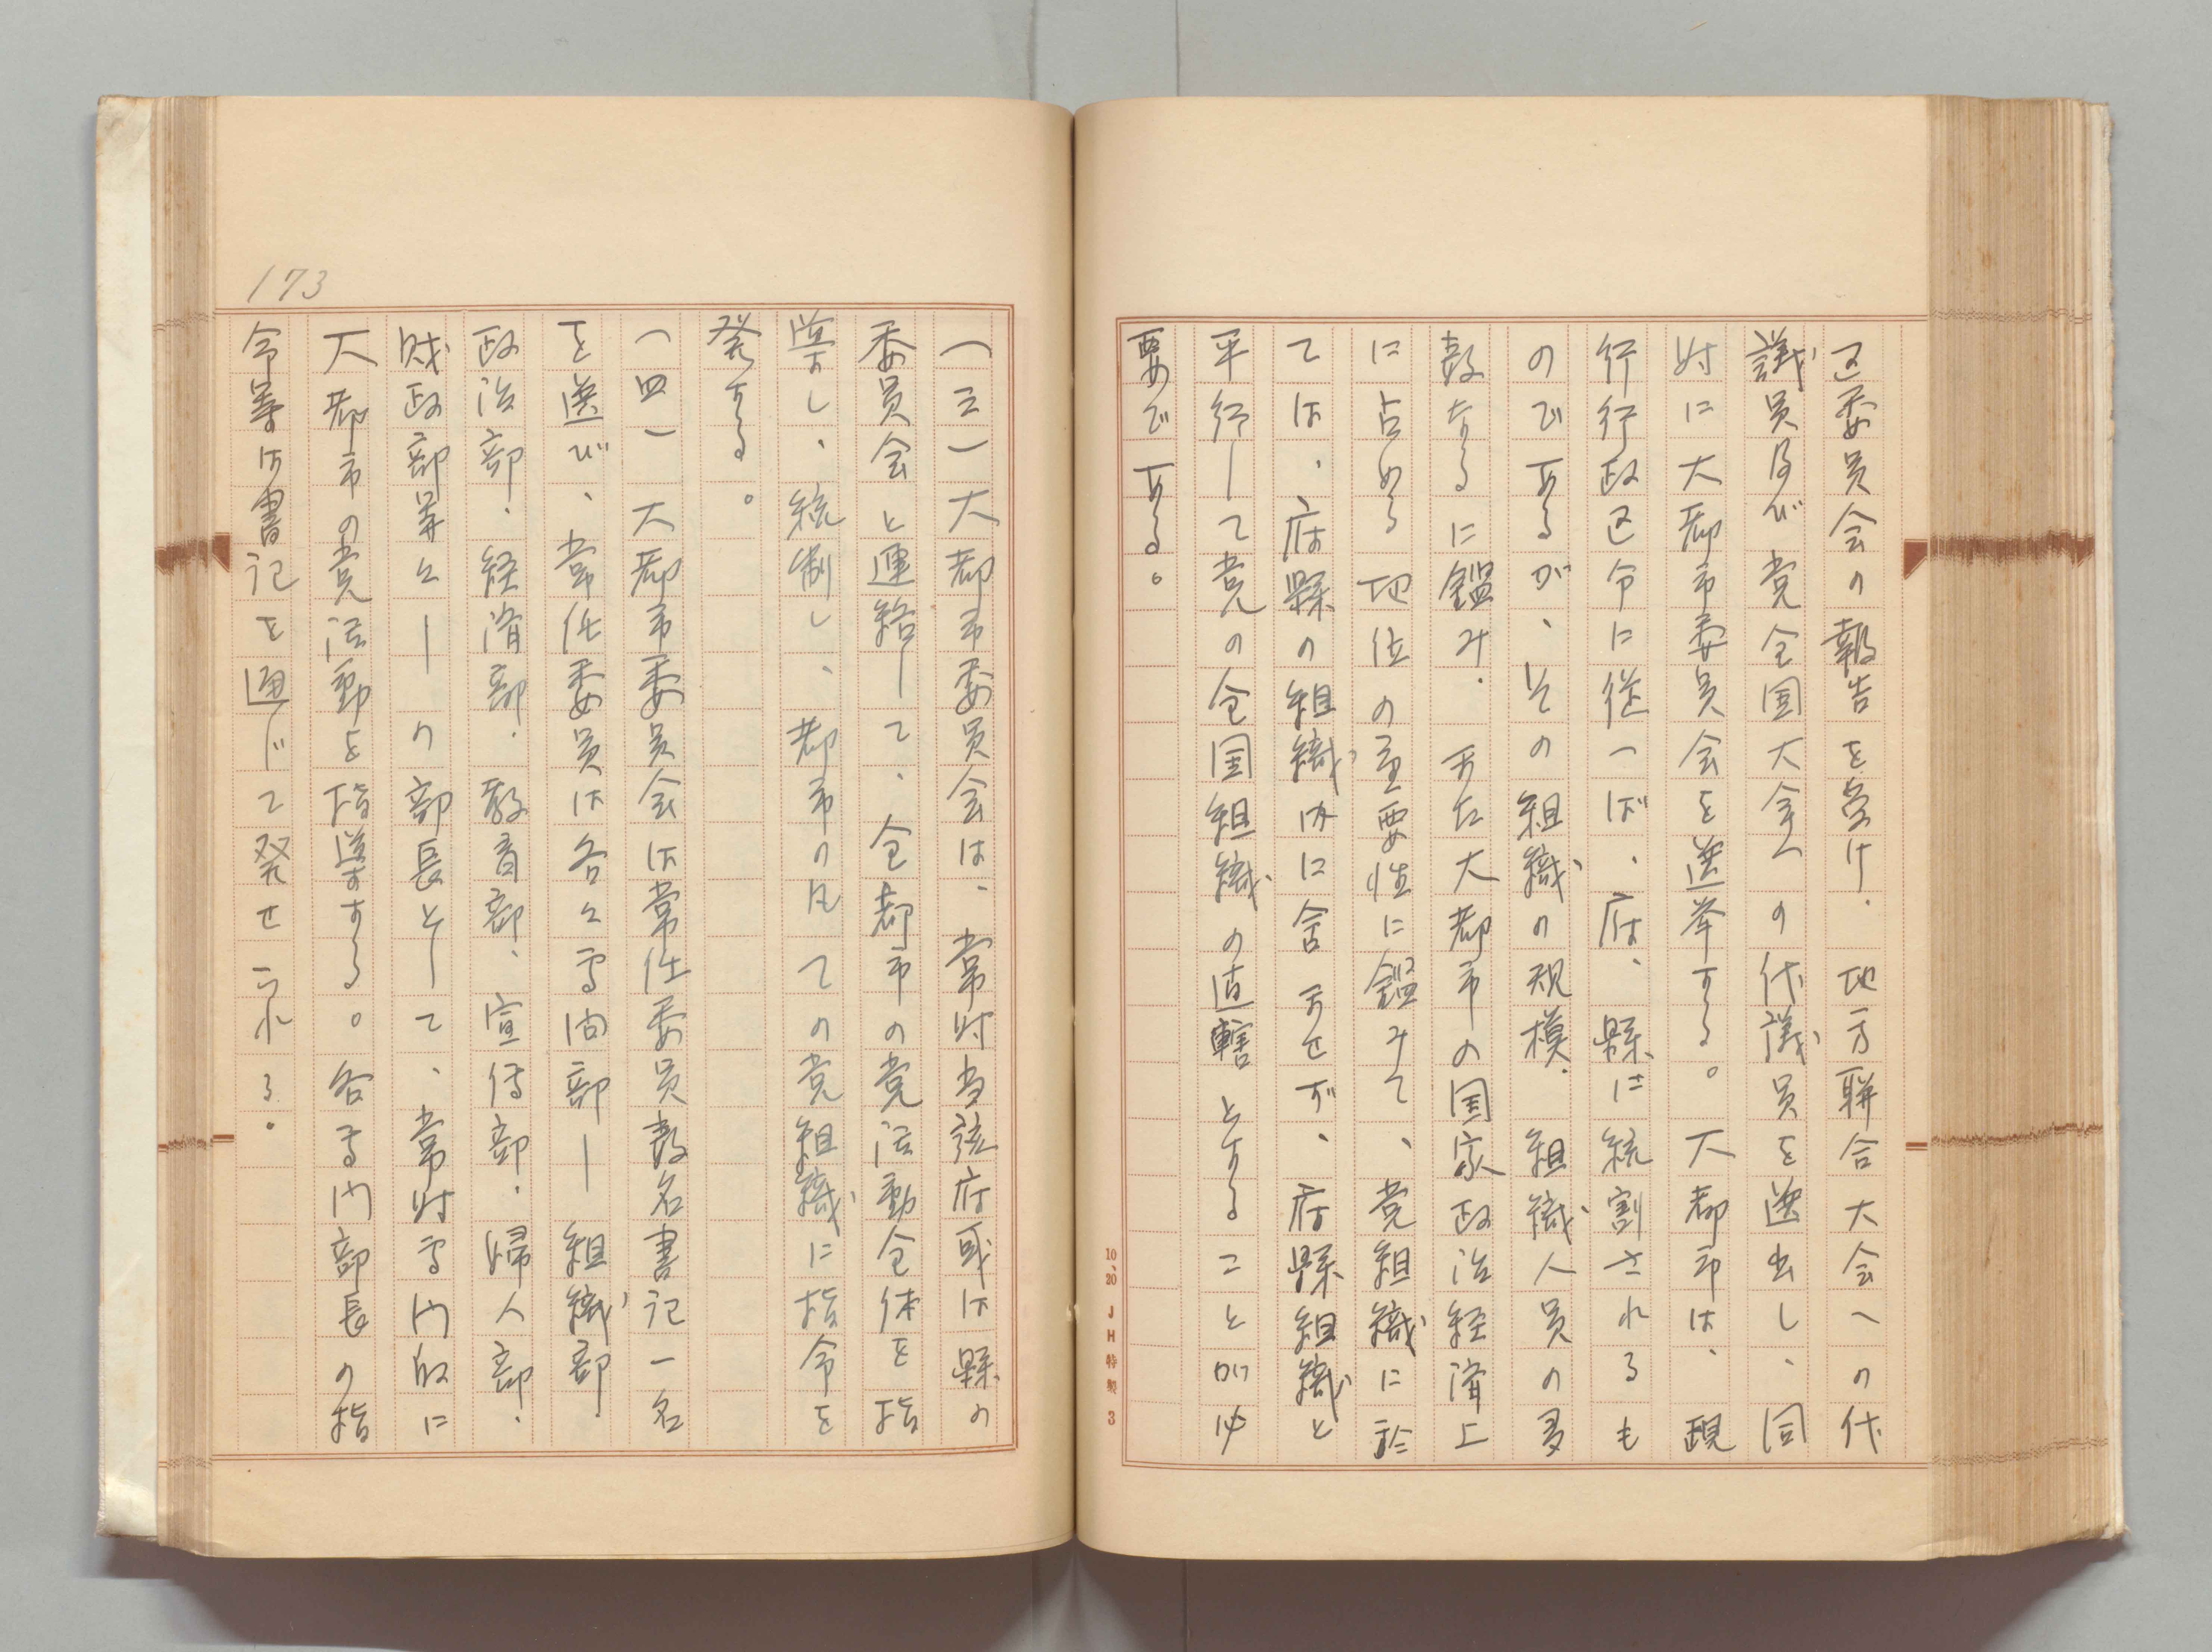 区委員会の報告を受け、地方聯合大会への代
議員及び党全国大会への代議員を選出し、同
時に大都市委員会を選挙する。大都市は、現
行行政区分に従へば、府、縣に統割されるも
のであるが、その組織の規模、組織人員の多
数なるに鑑み、また大都市の国家政治経済上
に占める地位の重要性に鑑みて、党組織に於
ては、府縣の組織内に含ませず、府縣組織と
平行して党の全国組織の直轄とすることが必
要である。
10、20 JH特製 3
173
(三)大都市委員会は、常時当該府或は縣の
委員会と連絡して、全都市の党活動全体を指
導し、統制し、都市の凡ての党組織に指令を
発する。
(四)大都市委員会は常任委員数名書記一名
を選び、常任委員は各々専門部―組織部、
政治部、経済部、教育部、宣傳部、婦人部、
財政部等々―の部長として、常時専門的に
大都市の党活動を指導する。各専門部長の指
令等は書記を通じて発せられる。